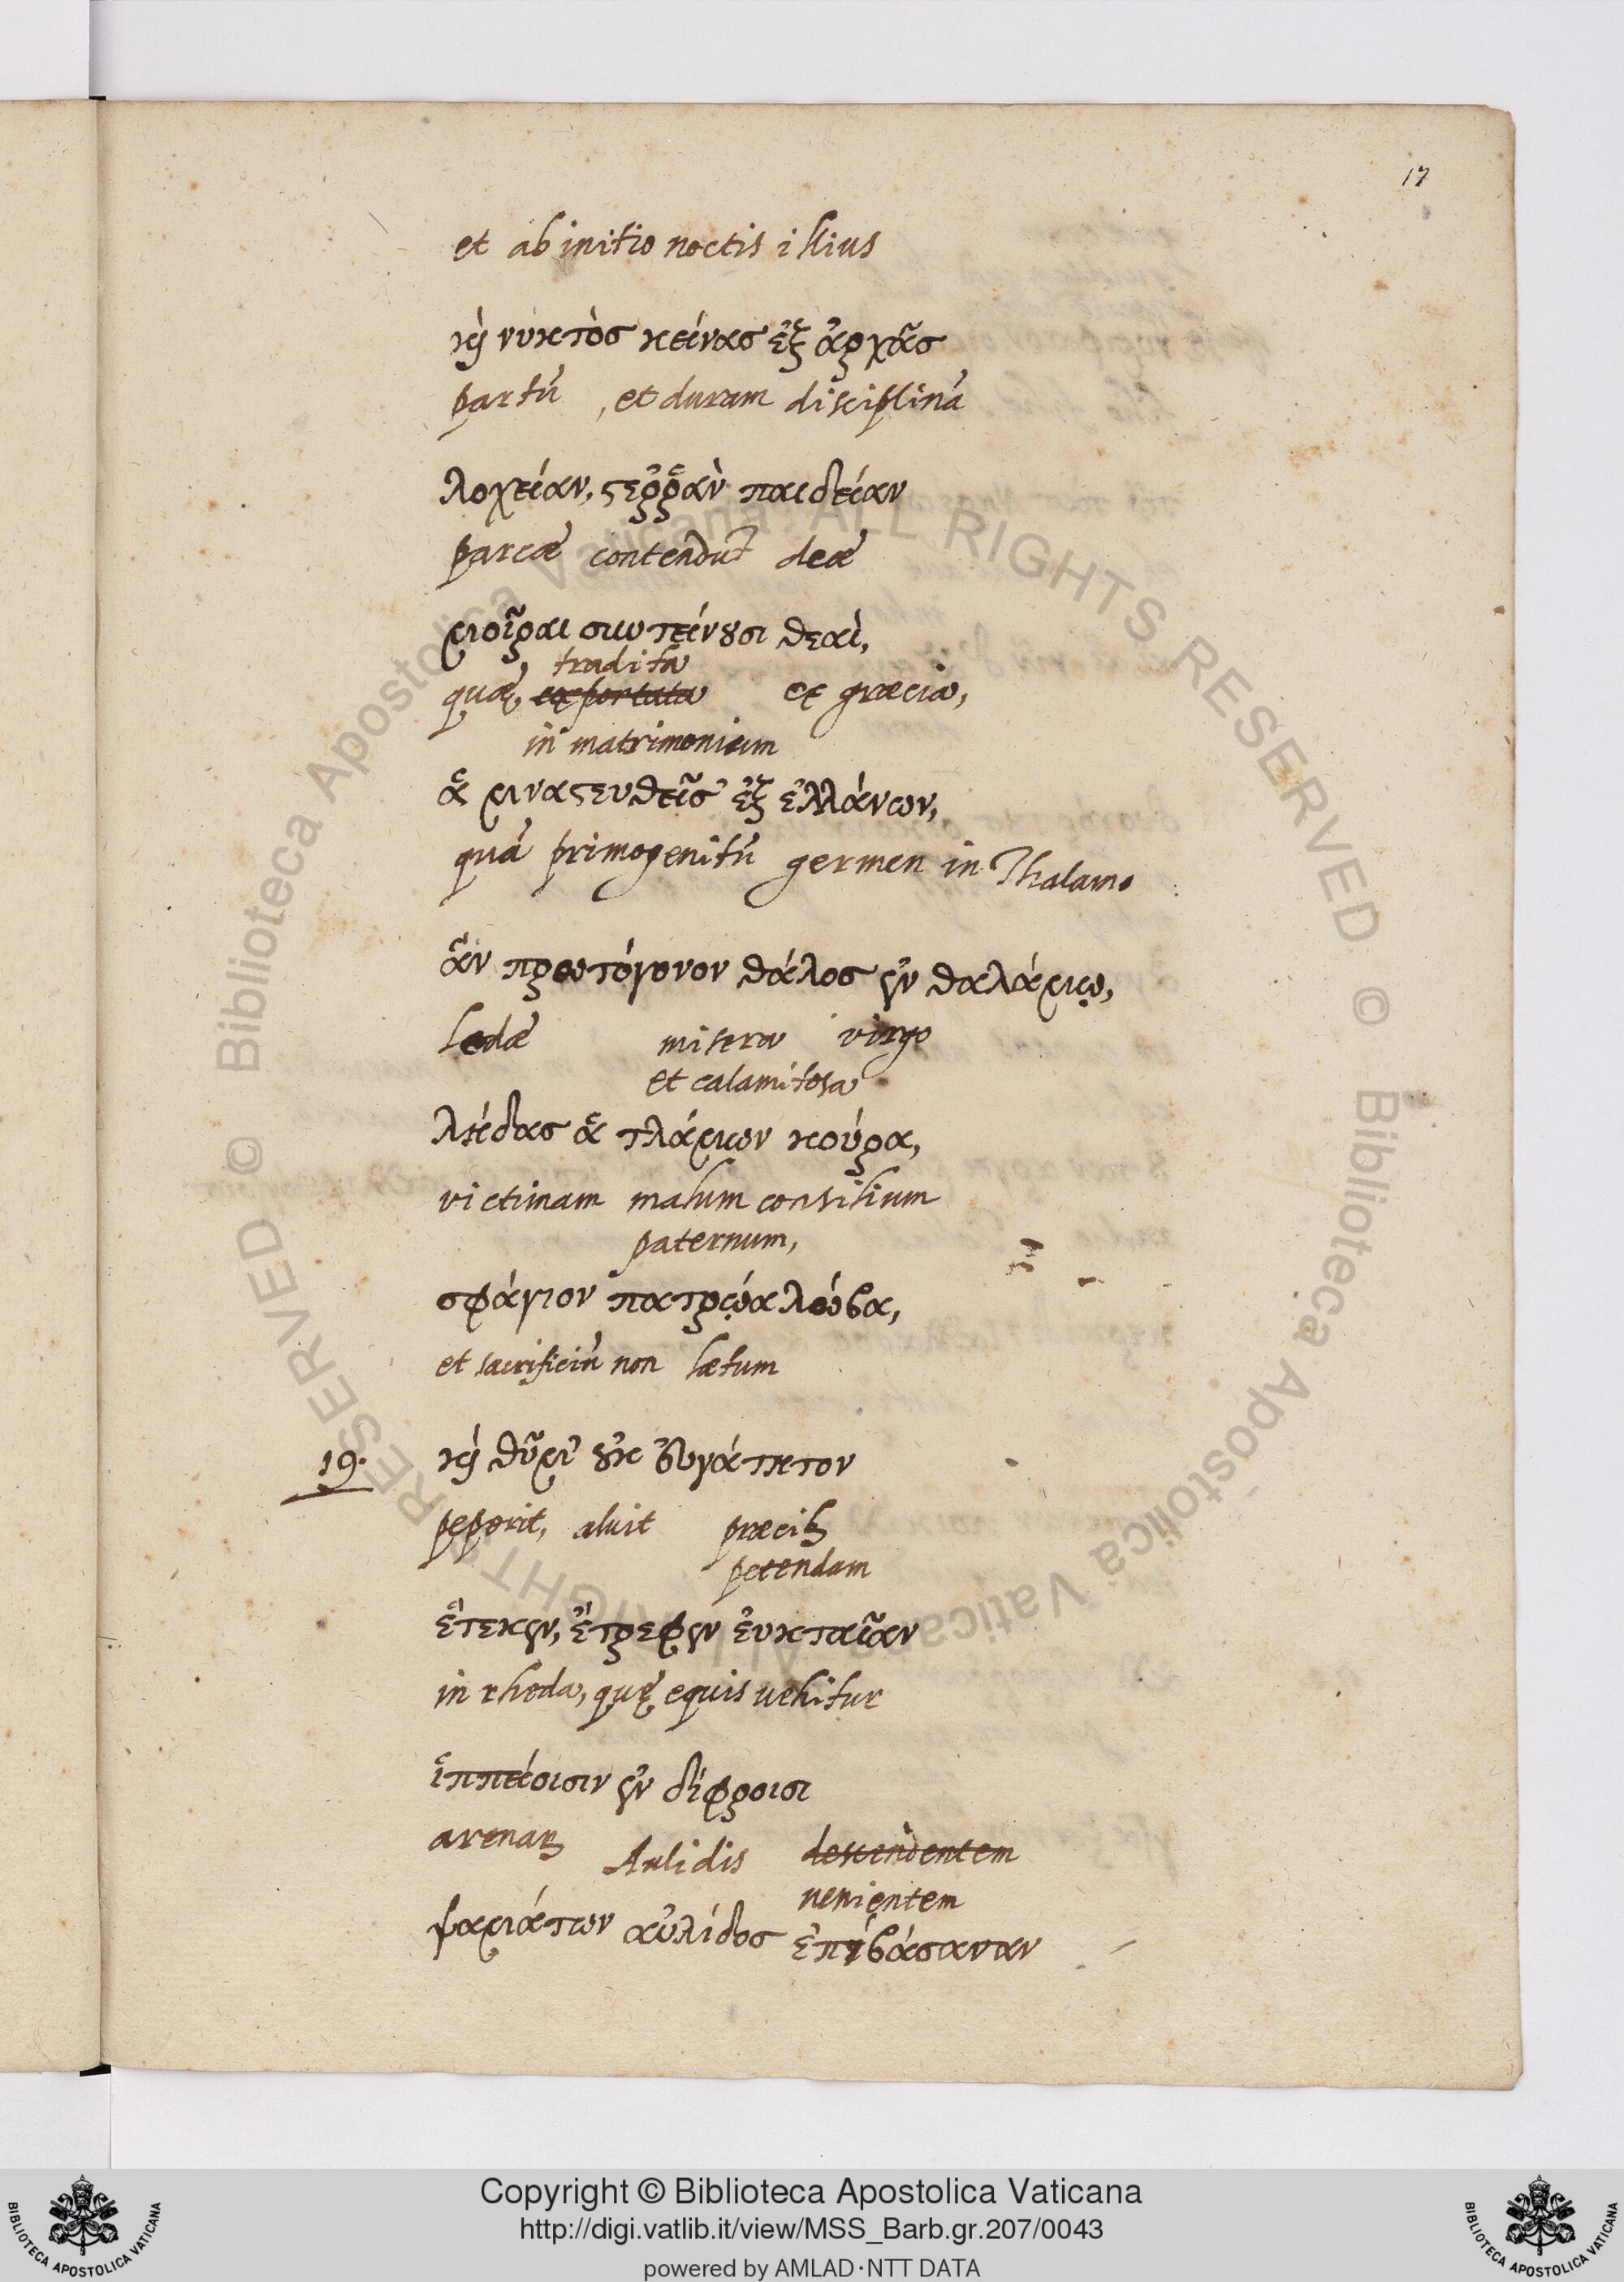 17
et ab initio noctis illius
καὶ νυκτὸσ κείνασ ἐξ ἀρχᾶσ
partū, et duram disciplinā
λοχείαν, στεῤῥὰν παιδείαν
parcæ contendūt deæ
μοῖραι συντείνουσι θεαὶ,
tradita
quæ, exportata ex græcia,
in matrimonium
ἁ μναστευθεῖσ' ἐξ ἑλλάνων,
quā primogenitū germen in Thalamo
ἃν πρωτόγονον θάλοσ ἐν θαλάμῳ,
Ledæ misera virgo
et calamitosa
λήδασ ἁ τλάμων κούρα,
victimam malum consilium
paternum,
σφάγιον πατρῴα λώβα,
et sacrificiū non lætum
19. καὶ θῦμ' οὐκ εὐγάπητον
peperit, aluit præcib
petendam
ἔτεκεν, ἔτρεφεν εὐκταῖαν
in rheda, quę equis vehitur
ἱππείοισιν ἐν δίφροισι
arenar
Aulidis descendentem
venientem
ψαμάτων αὐλίδοσ ἐπιβάσαναν
Copyright © Biblioteca Apostolica Vaticana
http://digi.vatlib.it/view/MSS_Barb.gr.207/0043
powered by AMLAD·NTT DATA
BIBLIOTECA APOSTOLICA VATICANA
BIBLIOTECA APOSTOLICA VATICANA
© Biblioteca Apostolica Vaticana ALL RIGHTS RESERVED
© Biblioteca Apostolica Vaticana ALL RIGHTS RESERVED